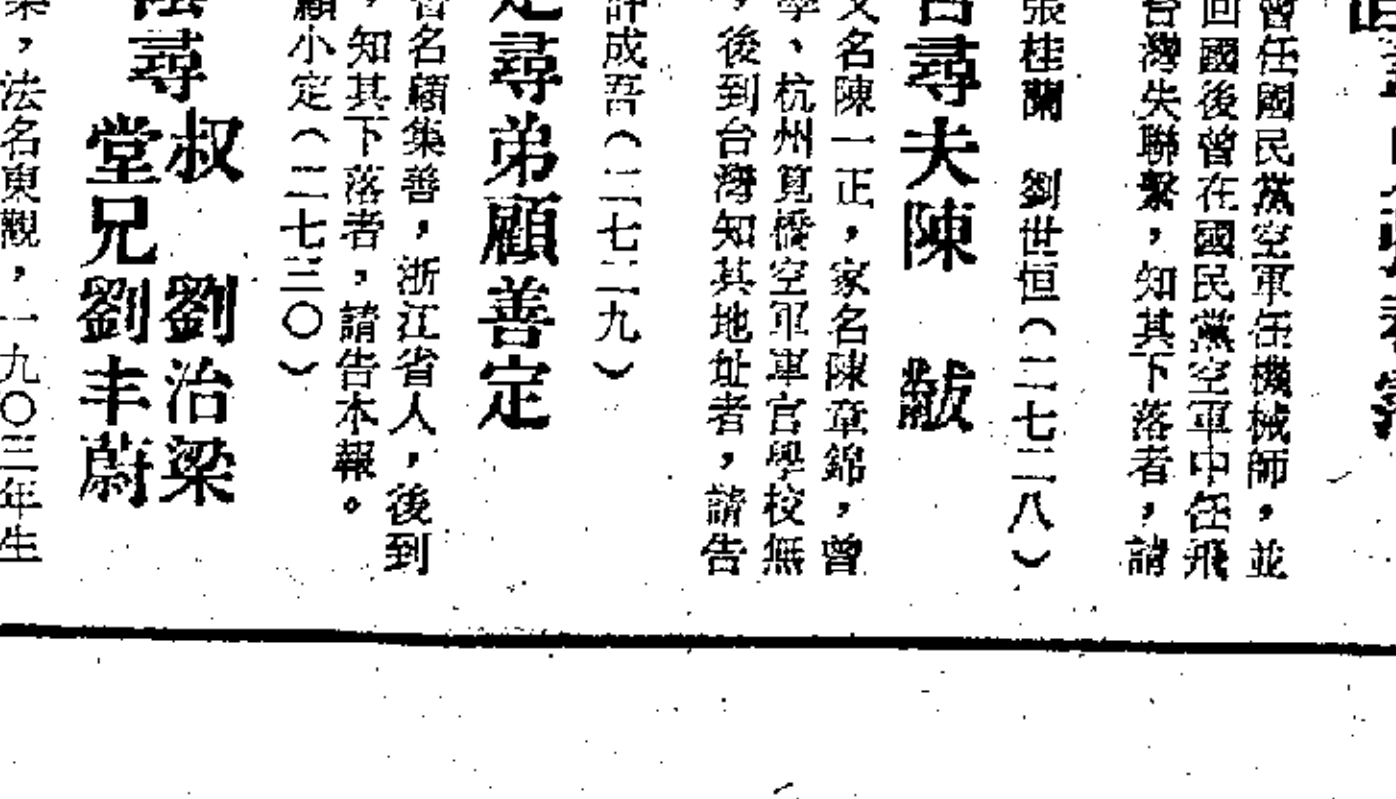 曾任國民黨空軍任機械師，並
回國後曾在國民黨空軍中任飛
台灣失聯繫，知其下落者，請
張桂蘭　劉世恒（二七二八）
尋夫陳　黻
又名陳一正，家名陳章錦，曾
學、杭州筧橋空軍軍官學校無
，後到台灣知其地址者，請告
許成吾（二七二九）
定尋弟顧善定
曾名顧集善，浙江省人，後到
，知其下落者，請告本報。
顧小定（二七三〇）
尋叔　劉治梁
堂兄劉丰蔚
，法名東觀，一九〇三年生